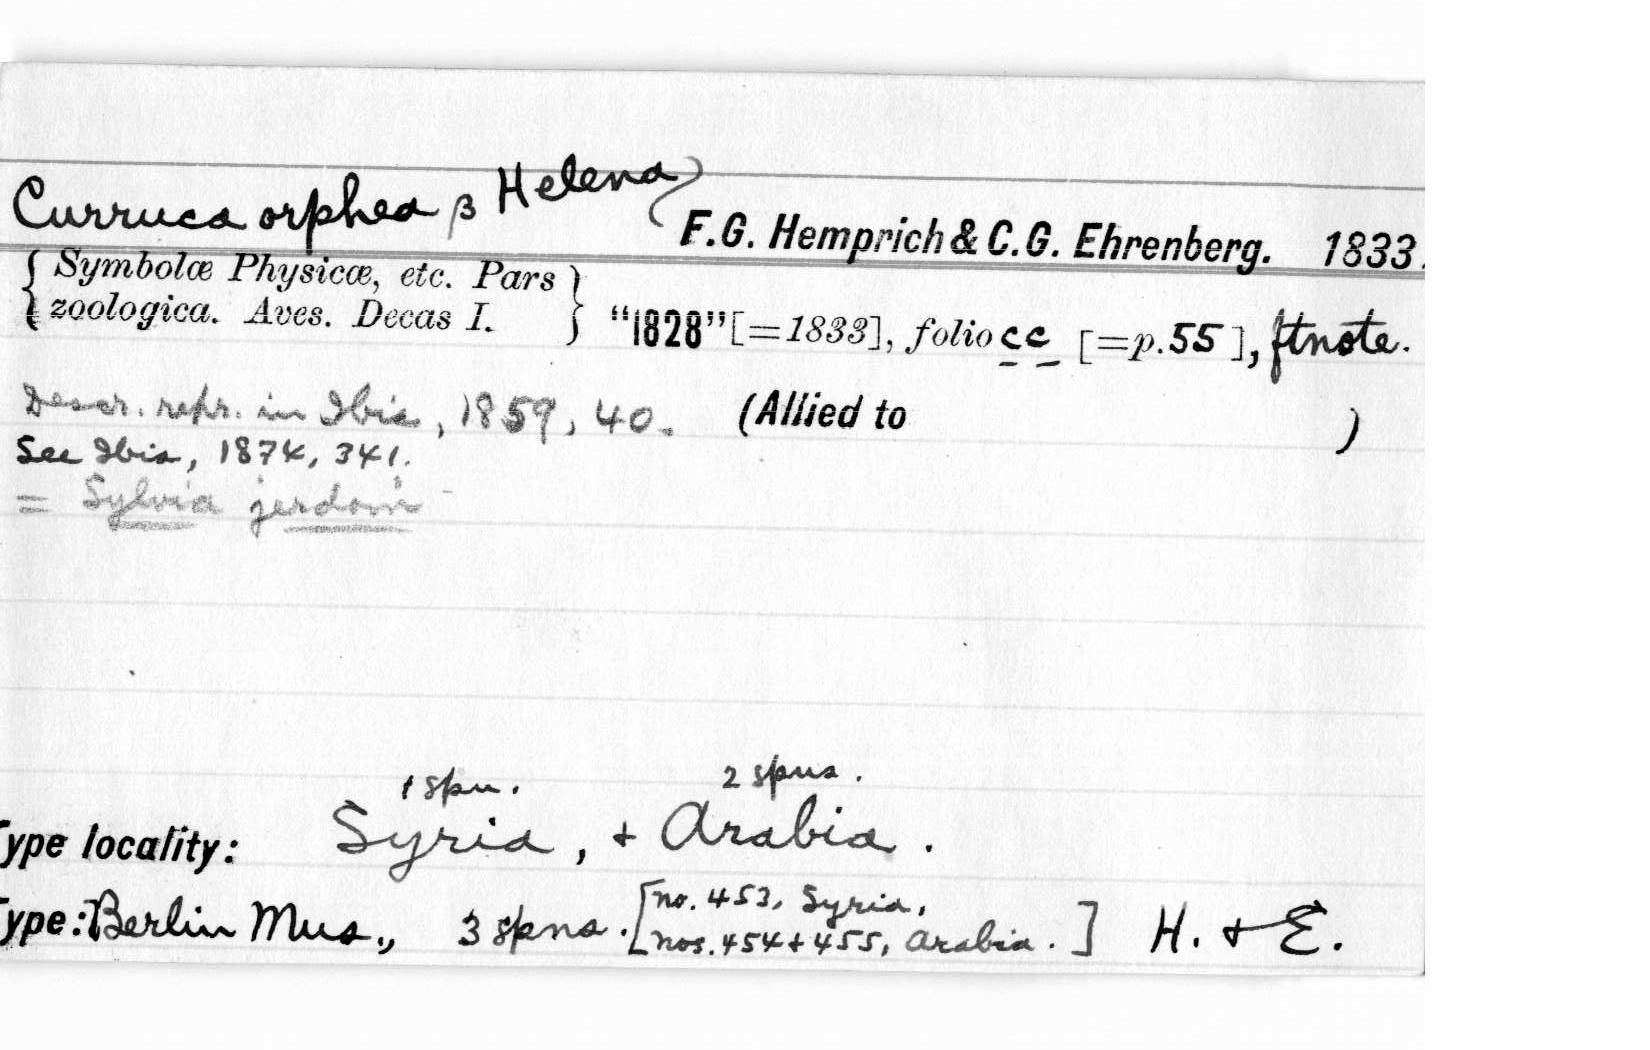 Curruca orphea β Helena F.G. Hemprich & C.G. Ehrenberg. 1833.
{ Symbolæ Physicæ, etc. Pars
zoologica. Aves. Decas I. } "1828" [=1833], folio cc [=p. 55], ftnote.
Descr. repr. in Ibis, 1859, 40. (Allied to )
See Ibis, 1874, 341.
= Sylvia jerdoni
1 spn. 2 spns.
Type locality: Syria, + Arabia.
Type: Berlin Mus., 3 spns. [no. 453, Syria,
nos. 454 + 455, Arabia.] H. + E.